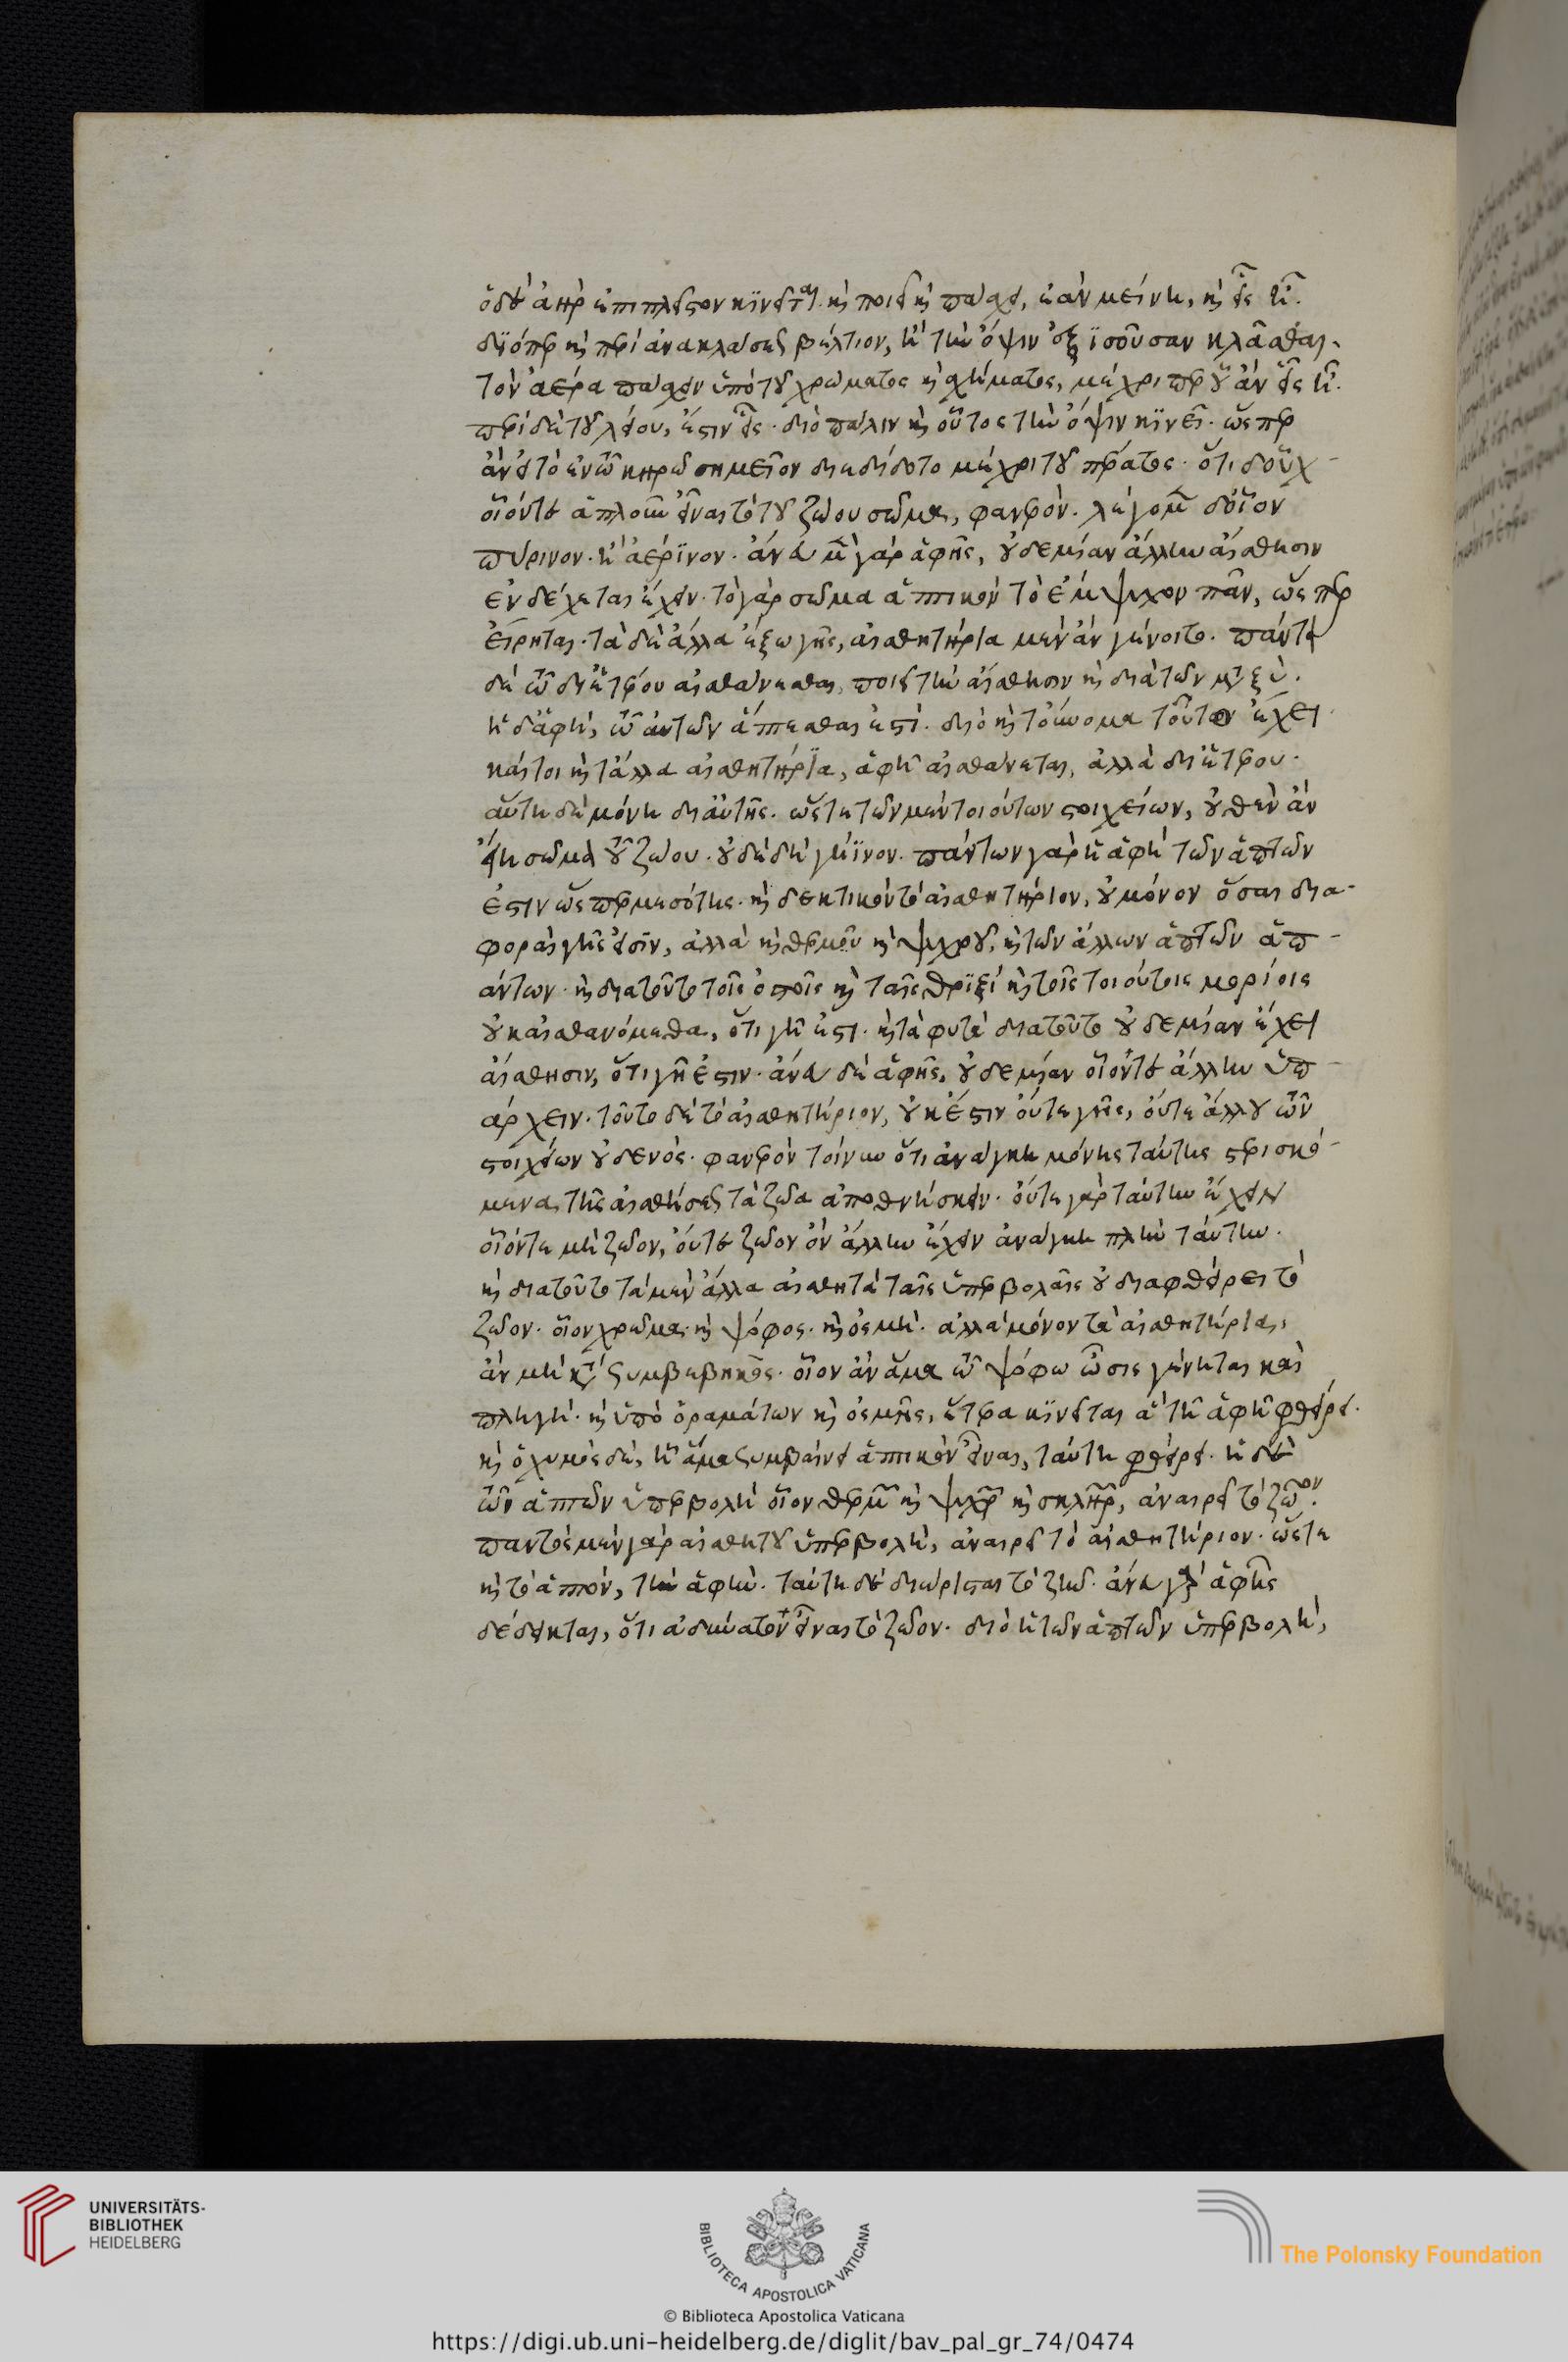 ὁ δὲ ἀὴρ ἐπιπλεῖστον κινεῖται. καὶ ποιεῖ καὶ πάσχει, ἐὰν μείνῃ, καὶ εἷς ᾖ.
διόπερ καὶ περὶ ἀνακλάσεως βέλτιον, ἢ τὴν ὄψιν ἐξϊοῦσαν κλᾶσθαι.
τὸν ἀέρα πάσχειν ὑπὸ τοῦ χρώματος καὶ σχήματος, μέχρι περ οὗ ἂν εἷς ᾖ.
περὶ δὲ τοῦ λείου, ἔστιν εἷς. διὸ πάλιν καὶ οὗτος τὴν ὄψιν κινεῖ. ὥσπερ
ἂν εἰ τὸ ἐν τῷ κηρῷ σημεῖον διεδίδοτο μέχρι τοῦ πέρατος. ὅτι δ' οὐχ
οἷόν τε ἁπλοῦν εἶναι τὸ τοῦ ζώου σῶμα, φανερόν. λέγομεν δ' οἷον
πύρινον. ἢ ἀέρϊνον. ἄνευ μὲν γὰρ ἁφῆς, οὐδεμίαν ἄλλην αἴσθησιν
ἐνδέχεται ἔχειν. τὸ γὰρ σῶμα ἁπτικὸν τὸ ἔμψυχον πᾶν, ὥσπερ
εἴρηται. τὰ δὲ ἄλλα ἔξω γῆς, αἰσθητήρια μὲν ἂν γένοιτο. πάντα
δὲ τῷ δι' ἑτέρου αἰσθάνεσθαι, ποιεῖ τὴν αἴσθησιν καὶ διὰ τῶν μεταξύ.
ἡ δ' ἁφή, τῷ αὐτῶν ἅπτεσθαι ἐστί. διὸ καὶ τοὔνομα τοῦτο ἔχει.
καίτοι καὶ τἄλλα αἰσθητήρϊα, ἁφῇ αἰσθάνεται, ἀλλὰ δι' ἑτέρου.
αὕτη δὲ μόνη δι' αὑτῆς. ὥστε τῶν μὲν τοιούτων στοιχείων, οὐθὲν ἂν
εἴη σῶμα τοῦ ζώου. οὐδὲ δὴ γήϊνον. πάντων γὰρ ἡ ἁφὴ τῶν ἁπτῶν
ἐστὶν ὥσπερ μεσότης. καὶ δεκτικὸν τὸ αἰσθητήριον, οὐ μόνον ὅσαι δια-
φοραὶ γῆς εἰσῖν, ἀλλὰ καὶ θερμοῦ καὶ ψυχροῦ, καὶ τῶν ἄλλων ἁπτῶν ἁπ-
άντων. καὶ διατοῦτο τοῖς ὀστοῖς καὶ ταῖς θριξὶ καὶ τοῖς τοιούτοις μορίοις
οὐκ αἰσθανόμεθα, ὅτι γῆ ἐστι. καὶ τὰ φυτὰ διατοῦτο οὐδεμίαν ἔχει
αἴσθησιν, ὅτι γῆ ἐστιν. ἄνευ δὲ ἁφῆς, οὐδεμίαν οἷόν τε ἄλλην ὑπ-
άρχειν. τοῦτο δὲ τὸ αἰσθητήριον, οὐκ ἔστιν οὔτε γῆς, οὔτε ἄλλου τῶν
στοιχείων οὐδενός. φανερὸν τοίνυν ὅτι ἀνάγκη μόνης ταύτης στερισκό-
μενα, τῆς αἰσθήσεως τὰ ζῶα ἀποθνήσκειν. οὔτε γὰρ ταύτην ἔχειν
οἷόντε μὴ ζῶον, οὔτε ζῶον ὂν ἄλλην ἔχειν ἀνάγκη πλὴν ταύτην.
καὶ διατοῦτο τὰ μὲν ἄλλα αἰσθητὰ ταῖς ὑπερβολαῖς οὐ διαφθείρει τὸ
ζῶον. οἷον χρῶμα. καὶ ψόφος. καὶ ὀσμή. ἀλλὰ μόνον τὰ αἰσθητήρια,
ἂν μὴ κατὰ συμβεβηκός. οἷον ἂν ἅμα τῷ ψόφω ὦσις γένηται καὶ
πληγή. καὶ ὑπὸ ὁραμάτων καὶ ὀσμῆς, ἕτερα κινεῖται ἃ τῇ ἁφῇ φθείρει.
καὶ ὁ χυμὸς δὲ, ᾗ ἅμα συμβαίνει ἁπτικὸν εἶναι, ταύτη φθείρει. ἡ δὲ
τῶν ἁπτῶν ὑπερβολὴ οἷον θερμῶν καὶ ψυχρῶν καὶ σκληρῶν, ἀναιρεῖ τὸ ζῶον.
παντὸς μὲν γὰρ αἰσθητοῦ ὑπερβολή, ἀναιρεῖ τὸ αἰσθητήριον. ὥστε
καὶ τὸ ἁπτόν, τὴν ἁφήν. ταύτη δὲ διώρισται τὸ ζῆν. ἄνευ γὰρ ἁφῆς
δέδεικται, ὅτι ἀδύνατον εἶναι τὸ ζῶον. διὸ ἡ τῶν ἁπτῶν ὑπερβολή,
UNIVERSITÄTS-
BIBLIOTHEK
HEIDELBERG
BIBLIOTECA APOSTOLICA VATICANA
The Polonsky Foundation
© Biblioteca Apostolica Vaticana
https://digi.ub.uni-heidelberg.de/diglit/bav_pal_gr_74/0474